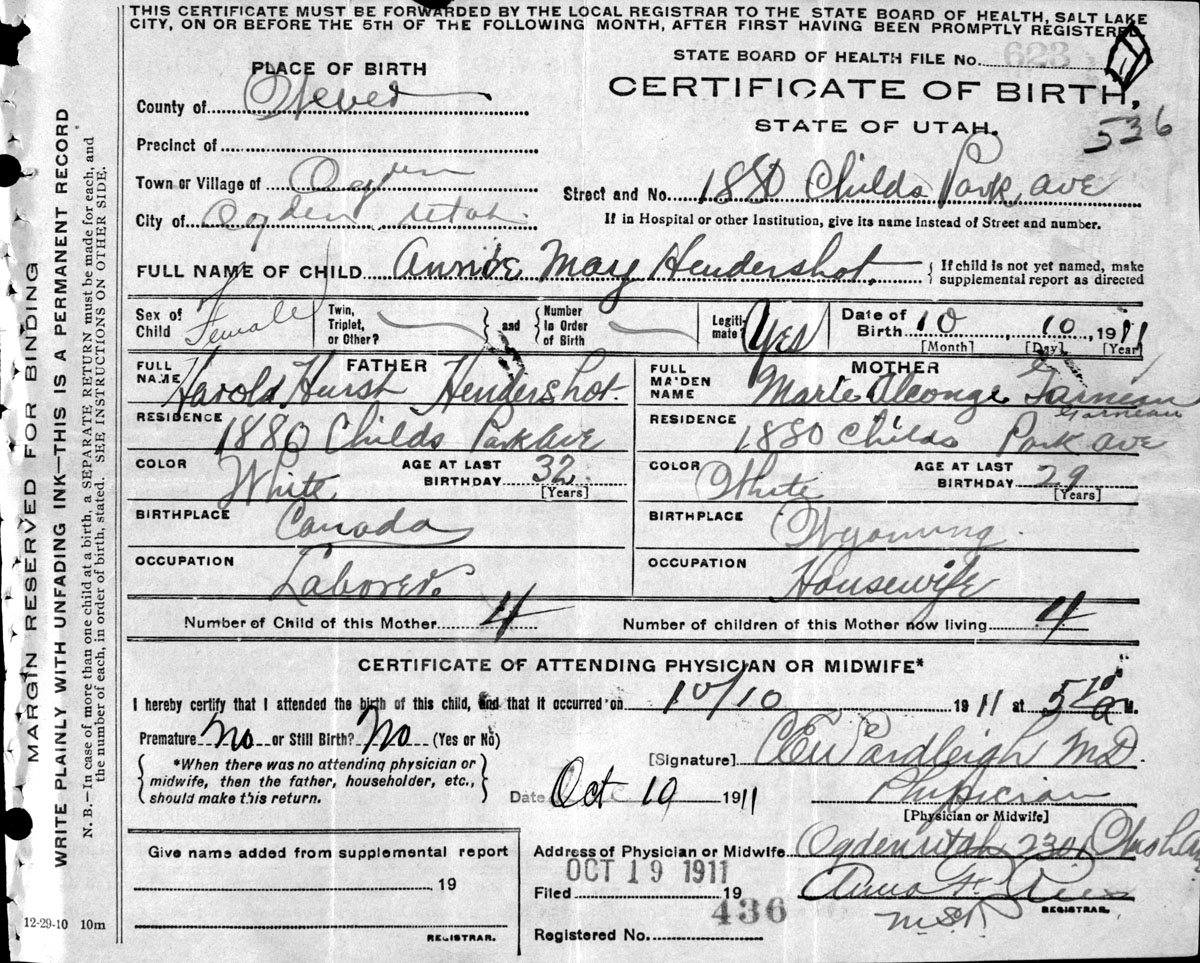 THIS CERTIFICATE MUST BE FORWARDED BY THE LOCAL REGISTRAR TO THE STATE BOARD OF HEALTH, SALT LAKE
CITY, ON OR BEFORE THE 5TH OF THE FOLLOWING MONTH, AFTER FIRST HAVING BEEN PROMPTLY REGISTERED
MARGIN RESERVED FOR BINDING
WRITE PLAINLY WITH UNFADING INK—THIS IS A PERMANENT RECORD
N. B.—In case of more than one child at a birth, a SEPARATE RETURN must be made for each, and
the number of each, in order of birth, stated. SEE INSTRUCTIONS ON OTHER SIDE.
STATE BOARD OF HEALTH FILE No. 623
PLACE OF BIRTH
CERTIFICATE OF BIRTH,
County of Weber
STATE OF UTAH.
536
Precinct of
Town or Village of Ogden
Street and No. 1880 Childs Park ave
City of Ogden Utah.
If in Hospital or other Institution, give its name instead of Street and number.
FULL NAME OF CHILD Annie May Hendershot. { If child is not yet named, make
supplemental report as directed
Sex of Child Female
Twin, Triplet, or Other?
and
Number In Order of Birth
Legitimate? Yes
Date of Birth 10, 10, 1911
[Month] [Day] [Year]
FATHER
FULL NAME Harold Hurst Hendershot.
MOTHER
FULL MAIDEN NAME Marie Garneau
Garneau
RESIDENCE 1880 Childs Park Ave
RESIDENCE 1880 Childs Park ave
COLOR White AGE AT LAST BIRTHDAY 32 [Years]
COLOR White AGE AT LAST BIRTHDAY 29 [Years]
BIRTHPLACE Canada
BIRTHPLACE Wyoming.
OCCUPATION Laborer.
OCCUPATION Housewife
Number of Child of this Mother 4
Number of children of this Mother now living 4
CERTIFICATE OF ATTENDING PHYSICIAN OR MIDWIFE*
I hereby certify that I attended the birth of this child, and that it occurred on 10/10 1911 at 5 10 a M.
Premature No or Still Birth? No (Yes or No)
*When there was no attending physician or
midwife, then the father, householder, etc.,
should make this return.
[Signature] MD
Date Oct 19 1911
Physician
[Physician or Midwife]
Give name added from supplemental report
19
REGISTRAR.
Address of Physician or Midwife Ogden Utah 2301
OCT 19 1911
Filed 19
Anna
REGISTRAR.
436
Registered No.
12-29-10 10m